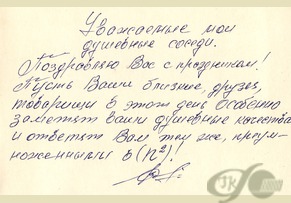 Уважаемые мои
душевные соседи.
Поздравляю Вас с праздником!
Пусть Ваши близкие, друзья,
товарищи в этот день особенно
заметят Ваши душевные качества
и ответят Вам тем же, преум-
ноженным в (n²)!